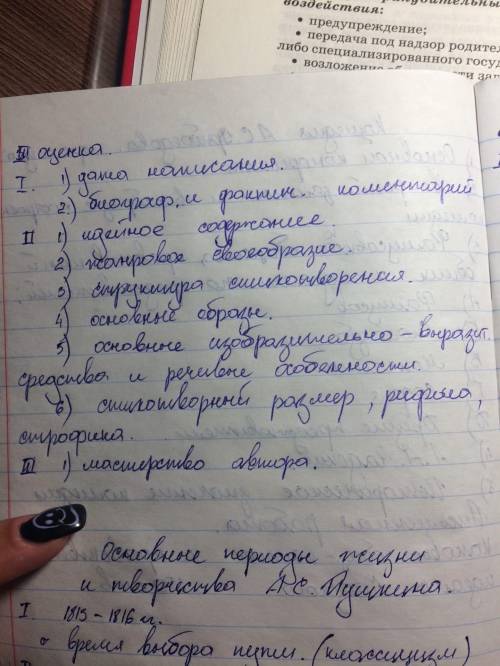 воздействия:
• предупреждение;
• передача под надзор родител
либо специализированного госуд
• возложение
III оценка.
I. 1) дата написания.
2.) биограф. и фактич. коментарий
II 1) идейное содержание.
2) жанровое своеобразие.
3) структура стихотворения.
4) основные образы.
5) основные изобразительно – выразит.
средства и речевые особености.
6) стихотворный размер, рифма,
строфика.
III 1) мастерство автора.
Основные периоды жизни
и творчества А.С. Пушкина.
I. 1815 – 1816 г.
время выбора пути. (классицизм)